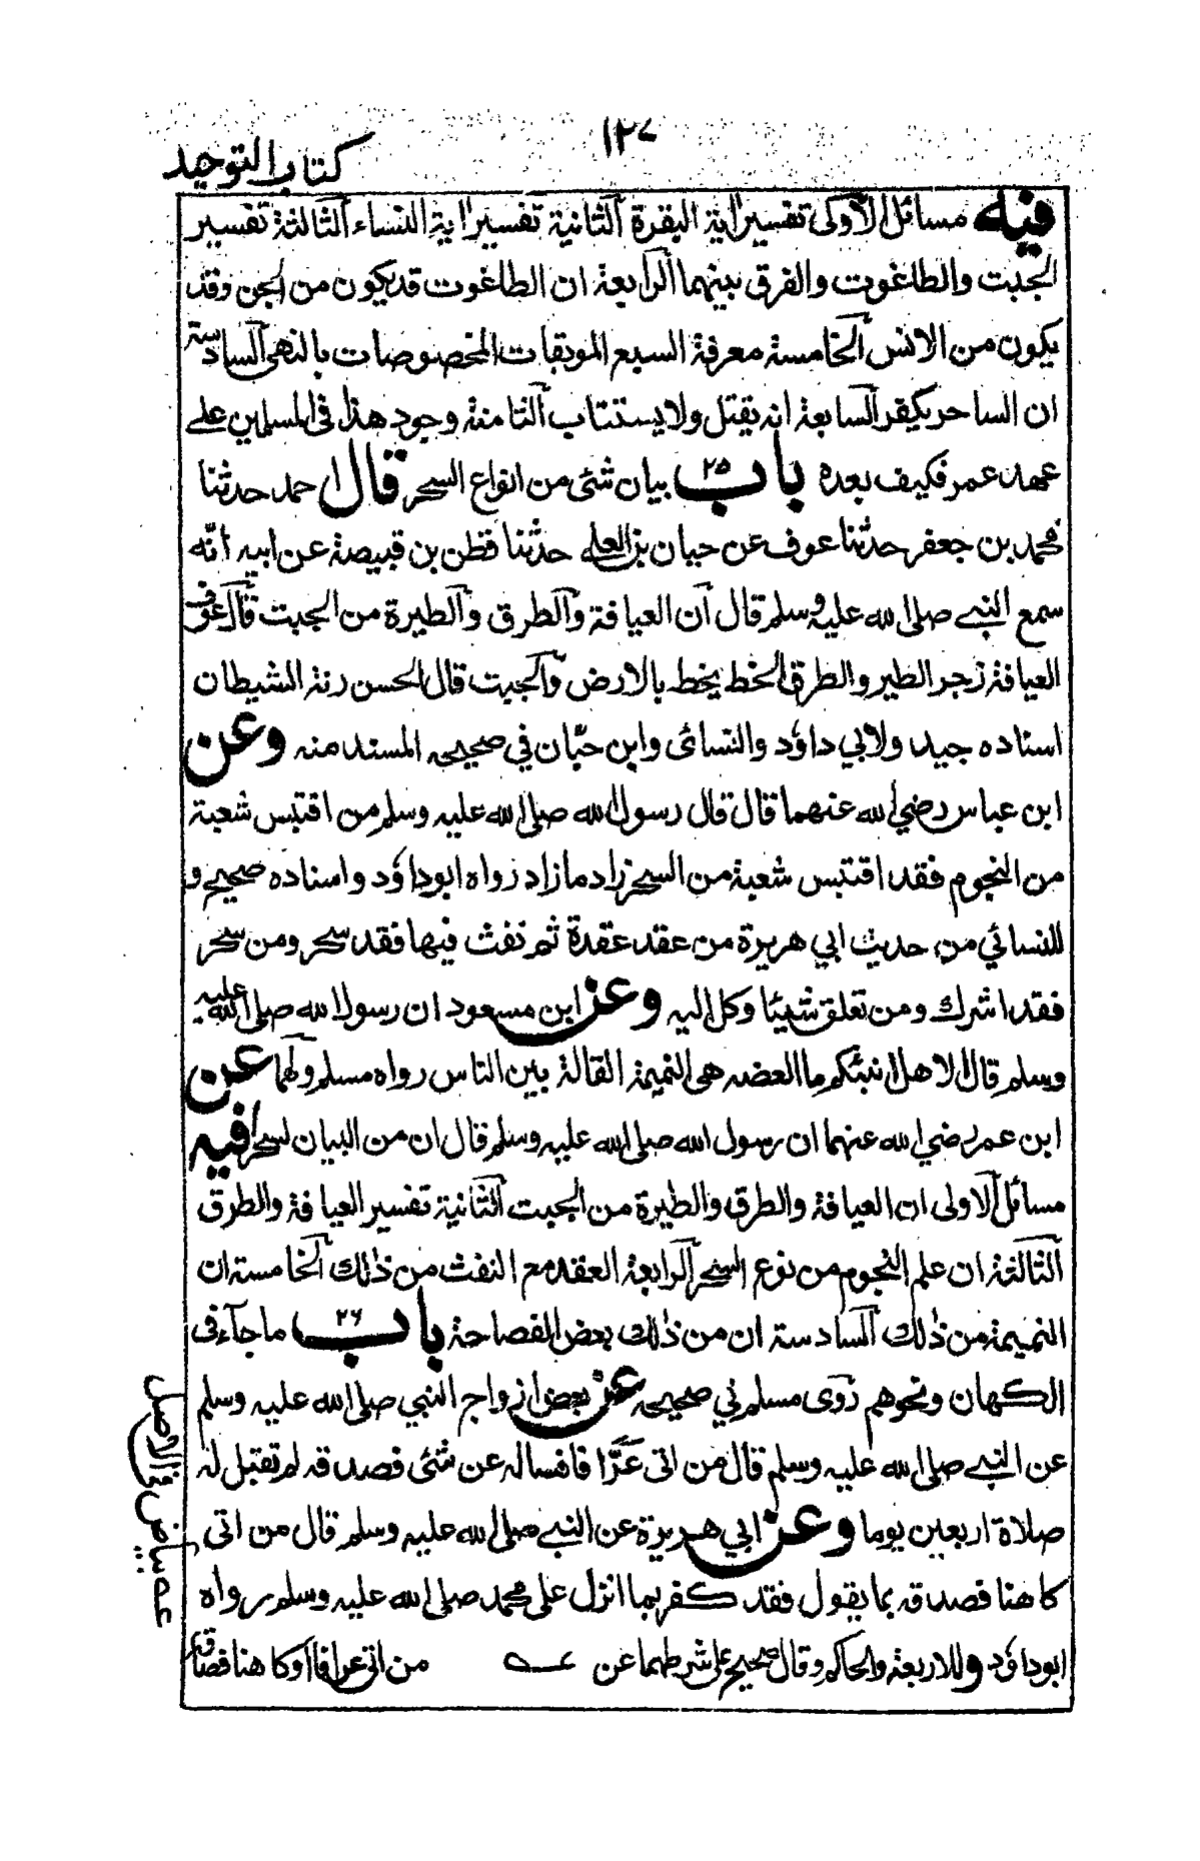 ١٢٧
كتاب التوحيد
فيه مسائل الاولى تفسير اية البقرة الثانية تفسير اية النساء الثالثة تفسير
الجبت والطاغوت والفرق بينهما الرابعة ان الطاغوت قد يكون من الجن وقد
يكون من الانس الخامسة معرفة السبع الموبقات المخصوصات بالنهى السادسة
ان الساحر يكفر السابعة انه يقتل ولا يستتاب الثامنة وجود هذا فى المسلمين على
عهد عمر فكيف بعده باب ٢٥ بيان شئى من انواع السحر قال احمد حدثنا
محمد بن جعفر حدثنا عوف عن حيان بن العلے حدثنا قطن بن قبيصة عن ابيه انّه
سمع النبے صلى الله عليه وسلم قال ان العيافة والطرق والطيرة من الجبت قال عوف
العيافة زجر الطير والطرق الخط يخط بالارض والجبت قال الحسن رنة الشيطان
اسناده جيد ولابي داؤد والنسائى وابن حبّان في صحيحه المسند منه وعن
ابن عباس رضي الله عنهما قال قال رسول الله صلى الله عليه وسلم من اقتبس شعبة
من النجوم فقد اقتبس شعبة من السحر زاد ما زاد رواه ابوداؤد واسناده صحيح و
للنسائي من حديث ابي هريرة من عقد عقدة ثم نفث فيها فقد سحر ومن سحر
فقد اشرك ومن تعلق شيئا وكل اليه وعن ابن مسعود ان رسول الله صلى الله عليه
وسلم قال الا هل انبئكم ما العضه هى النميمة القالة بين الناس رواه مسلم ولهما عن
ابن عمر رضي الله عنهما ان رسول الله صلى الله عليه وسلم قال ان من البيان لسحرا فيه
مسائل الاولى ان العيافة والطرق والطيرة من الجبت الثانية تفسير العيافة والطرق
الثالثة ان علم النجوم من نوع السحر الرابعة العقد مع النفث من ذلك الخامسة ان
النميمة من ذلك السادسة ان من ذلك بعض الفصاحة باب ٢٦ ما جآء فى
الكهان ونحوهم روى مسلم في صحيحه عن بعض ازواج النبي صلى الله عليه وسلم
عن النبے صلى الله عليه وسلم قال من اتى عرّافا فساله عن شئى فصدقه لم تقبل له
صلاة اربعين يوما وعن ابي هريرة عن النبے صلى الله عليه وسلم قال من اتى
كاهنا فصدقه بما يقول فقد كفر بما انزل على محمد صلى الله عليه وسلم رواه
ابوداؤد وللاربعة والحاكم وقال صحيح على شرطهما عن عــه من اتى عرافا او كاهنا فصدقه
عـه بياض فى الاصل